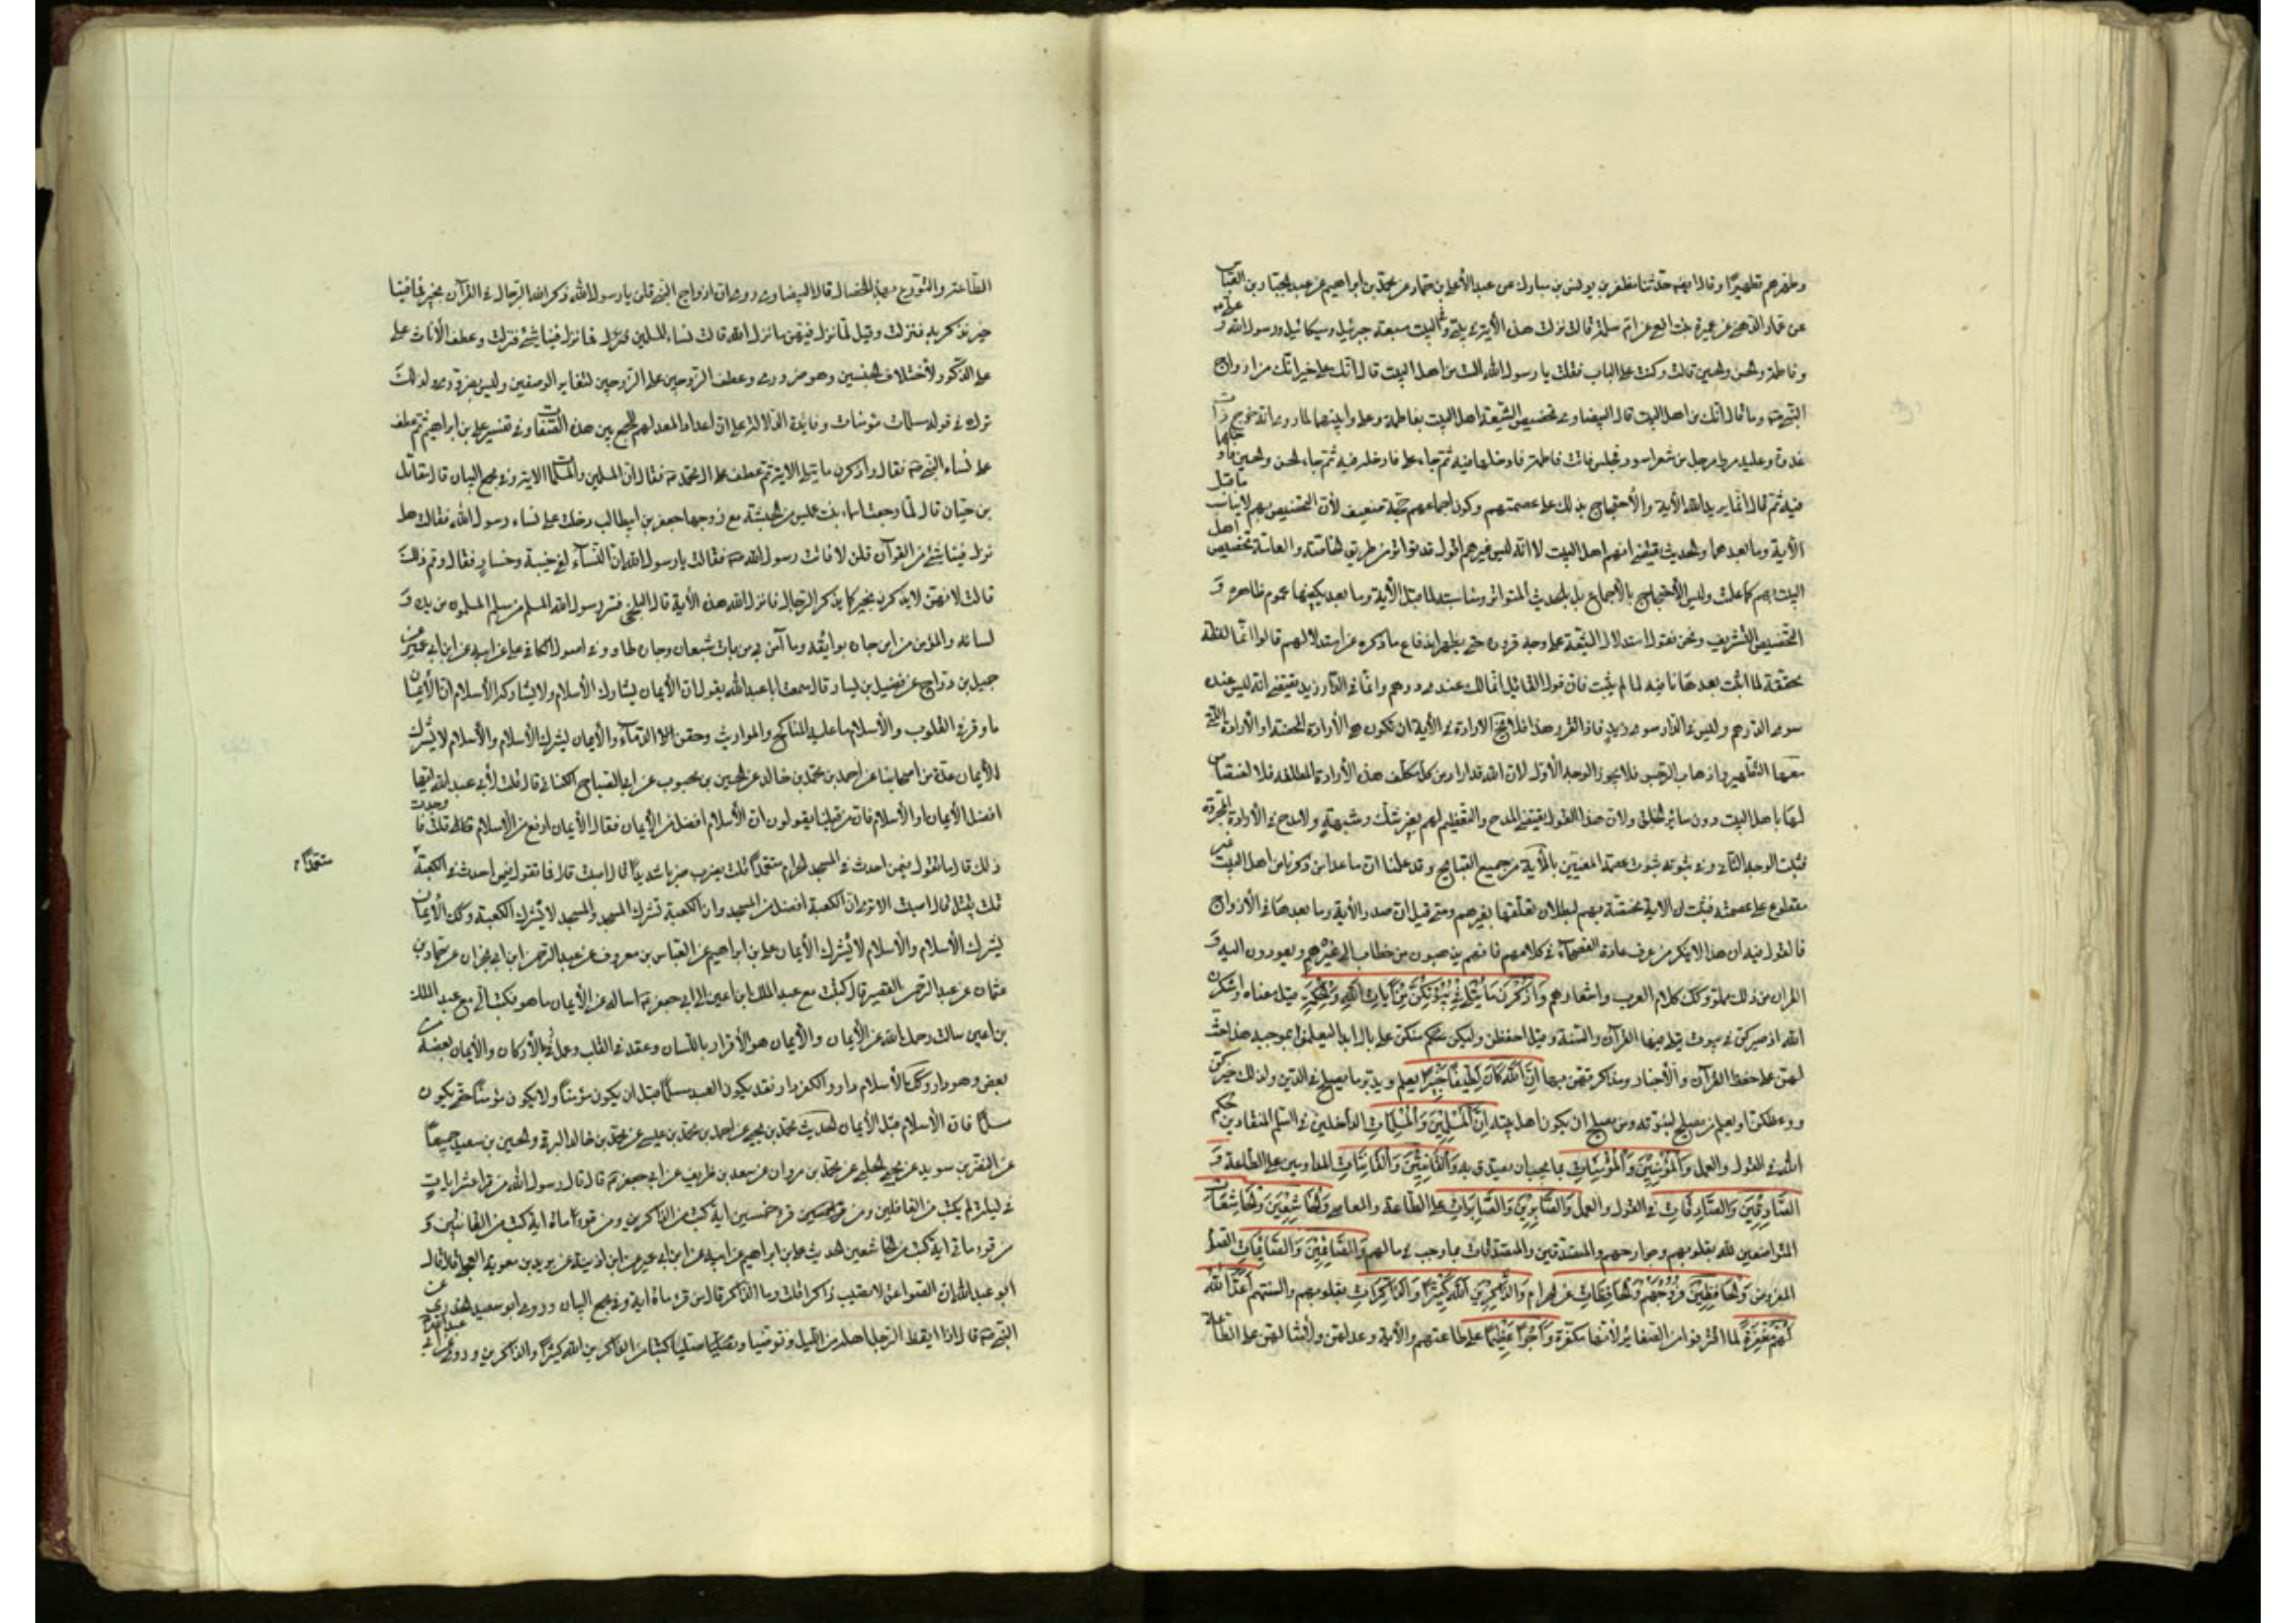 وطهرهم تطهيرًا وقال ايضه حدثنا مظفر بن يونس بن مبارك عن عبد الأعلى بن حماد عن مخول بن ابراهيم عن عبد الجبار بن العباس
عن عمار الدهني عن عمرة بنت افعى عن ام سلمة قالت نزلت هذه الآية في بيتي وفي البيت سبعة جبرئيل وميكائيل ورسول الله و
وفاطمة والحسن والحسين قالت وكنت على الباب فقلت يا رسول الله الست من اهل البيت قال انك على خير انك من ازواج
النبي وما قال انك من اهل البيت قال البيضاوي تخصيص الشيعة اهل البيت بفاطمة وعلي وابنيهما لما روي انه خرج ذات
غدوة وعليه مرط مرجل من شعر اسود فجلس فاتت فاطمة فادخلها فيه ثم جاء علي فادخله فيه ثم جاء الحسن والحسين
فيه ثم قال انما يريد الله الآية والاحتجاج بذلك على عصمتهم وكون اجماعهم حجة ضعيف لأن التخصيص بهم لا يناسب ما قبل
الآية وما بعدها والحديث يقتضي انهم اهل البيت لا انه ليس غيرهم اقول قد تواتر من طريق الخاصة والعامة تخصيص اهل
البيت بهم كما علمت وليس الاحتجاج بالاجماع بل بالحديث المتواتر ومناسبته لما قبل الآية وما بعد يكفيها عموم ظاهره و
التخصيص للتشريف ونحن نقول استدلال الشيعة على وجه قررون حتى يظهر اندفاع ما ذكره عن استدلالهم قالوا انما لفظة
محققة لما اثبت بعدها نافية لما لم يثبت فان قول القائل انما لك عندي درهم وانما في الدار زيد يقتضي انه ليس عنده
سوى الدرهم وليس في الدار سوى زيد فاذا تقرر هذا فلا تخلو الارادة في الآية ان تكون هي الأرادة المحضة او الأرادة التي
تتبعها التطهير واذهاب الرجس فلا يجوز الوجه الأول لان الله قد اراد من كل مكلف هذه الأرادة المطلقة فلا اختصاص
لها باهل البيت دون سائر الخلق ولان هذا القول يقتضي المدح والتعظيم لهم بغير شك وشبهة ولا مدح في الأرادة المجردة
فثبت الوجه الثاني وفي ثبوته ثبوت عصمة المعنيين بالآية من جميع القبايح وقد علمنا ان ما عدا من ذكرنا من اهل البيت غير
مقطوع على عصمته فثبت ان الاية مختصة بهم لبطلان تعلقها بغيرهم ومتى قيل ان صدر الآية وما بعدها في الأزواج
فالقول فيه ان هذا لا ينكر من عرف عادة الفصحاء في كلامهم فانهم يذهبون من خطاب الى غيرهم ويعودون اليه و
القرآن من ذلك مملو وكك كلام العرب واشعارهم وَاذْكُرْنَ مَا يُتْلَىٰ فِي بُيُوتِكُنَّ مِنْ آيَاتِ اللَّهِ وَالْحِكْمَةِ قيل معناه واشكرن
الله اذ صيركن في بيوت يتلى فيها القرآن والسنة وقيل احفظن وليكن منكن على بال ابدا ليعملن بموجبه هذا حث
لهن على حفظ القرآن والأخبار ومذاكرتهن بها اِنَّ اللَّهَ كَانَ لَطِيفًا خَبِيرًا يعلم ويدبر ما يصلح في الدين ولذلك خيركن
ووعظكن او يعلم من يصلح لنبوته ومن يصلح ان يكون اهل بيته اِنَّ الْمُسْلِمِينَ وَالْمُسْلِمَاتِ الداخلين في السلم المنقادين لحكم
الله في القول والعمل وَالْمُؤْمِنِينَ وَالْمُؤْمِنَاتِ بما يجب ان يصدق به وَالْقَانِتِينَ وَالْقَانِتَاتِ المداومين على الطاعة وَ
الصَّادِقِينَ وَالصَّادِقَاتِ في القول والعمل وَالصَّابِرِينَ وَالصَّابِرَاتِ على الطاعة والمعاصي وَالْخَاشِعِينَ وَالْخَاشِعَاتِ
المتواضعين لله بقلوبهم وجوارحهم والمتصدقين والمتصدقات بما وجب في مالهم وَالصَّائِمِينَ وَالصَّائِمَاتِ الصوم
المفروض وَالْحَافِظِينَ فُرُوجَهُمْ وَالْحَافِظَاتِ عن الحرام وَالذَّاكِرِينَ اللَّهَ كَثِيرًا وَالذَّاكِرَاتِ بقلوبهم والسنتهم اَعَدَّ اللَّهُ
لَهُمْ مَغْفِرَةً لما اقترفوا من الصغائر لأنها مكفرة وَاَجْرًا عَظِيمًا على طاعتهم والآية وعد لهن ولأمثالهن على الطاعة
الطاعة والتورع بهذه الخصال قال البيضاوي روي ان ازواج النبي قلن يا رسول الله ذكر الله الرجال في القرآن بخير فما فينا
خير نذكر به فنزلت وقيل لما نزل فيهن ما نزل قالت نساء المسلمين فما نزل فينا شئ فنزلت وعطف الأناث على
على الذكور لأختلاف الجنسين وهو ضروري وعطف الزوجين على الزوجين لتغاير الوصفين وليس بضروري ولذلك
ترك في قوله مسلمات مؤمنات وفائدة الدلالة على ان اعداد المعد لهم للجمع بين هذه الصفات وفي تفسير علي بن ابراهيم ثم عطف
على نساء النبي فقال واذكرن ما يتلى الاية ثم عطف على ال محمد فقال ان المسلمين والمسلمات الاية وفي مجمع البيان قال مقاتل
بن حيان قال لما رجعت اسماء بنت عميس من الحبشة مع زوجها جعفر بن ابيطالب دخلت على نساء رسول الله فقالت هل
نزل فينا شئ من القرآن قلن لا فاتت رسول الله فقالت يا رسول الله ان النساء لفي خيبة وخسار فقال ومم ذلك
قالت لأنهن لا يذكرن بخير كما يذكر الرجال فانزل الله هذه الآية قال البلخي فسر رسول الله المسلم من سلم المسلمون من يده و
لسانه والمؤمن من امن جاره بوائقه وما آمن بي من بات شبعان وجاره طاو وفي اصول الكافي علي عن ابيه عن ابن ابي عمير عن
جميل بن دراج عن فضيل بن يسار قال سمعت ابا عبد الله يقول ان الأيمان يشارك الأسلام ولا يشاركه الأسلام ان الأيمان
ما وقر في القلوب والأسلام ما عليه المناكح والمواريث وحقن الدماء والأيمان يشرك الأسلام والأسلام لا يشرك
الأيمان عدة من اصحابنا عن احمد بن محمد بن خالد عن الحسن بن محبوب عن ابي الصباح الكناني قال قلت لأبي عبد الله ايهما
افضل الأيمان او الأسلام فان من قبلنا يقولون ان الأسلام افضل من الأيمان فقال الأيمان ارفع من الأسلام قلت فاوجدني
ذلك قال ما تقول فيمن احدث في المسجد الحرام متعمدًا قلت يضرب ضربا شديدًا قال اصبت قال فما تقول فيمن احدث في الكعبة
متعمدًا
قلت يقتل قال اصبت الا ترى ان الكعبة افضل من المسجد وان الكعبة تشرك المسجد والمسجد لا يشرك الكعبة وكك الأيمان
يشرك الأسلام والأسلام لا يشرك الأيمان علي بن ابراهيم عن العباس بن معروف عن عبد الرحمن ابن ابي نجران عن حماد بن
عثمان عن عبد الرحيم القصير قال كتبت مع عبد الملك ابن اعين الى ابي اساله عن الأيمان ما هو فكتب الي مع عبد الملك
بن اعين سالت رحمك الله عن الأيمان والأيمان هو الأقرار باللسان وعقد في القلب وعمل بالأركان والأيمان بعضه من
بعض وهو دار وكك الأسلام دار والكفر دار فقد يكون العبد مسلمًا قبل ان يكون مؤمنًا ولا يكون مؤمنًا حتى يكون
مسلمًا فان الأسلام قبل الأيمان الحديث محمد بن يحيى عن احمد بن محمد بن عيسى عن محمد بن خالد البرقي والحسين بن سعيد جميعًا
عن النضر بن سويد عن يحيى الحلبي عن محمد بن مروان عن سعد بن طريف عن ابي جعفر قال قال رسول الله من قرا عشر ايات
في ليلة لم يكتب من الغافلين ومن قرء خمسين اية كتب من الذاكرين ومن قرء ماة اية كتب من القانتين و
من قرء ماتي اية كتب من الخاشعين الحديث علي بن ابراهيم عن ابيه عن ابن ابي عمير عن ابن اذينة عن بريد بن معوية العجلي قال قال
ابو عبد الله ان الصواعق لا تصيب ذاكرا قلت وما الذاكر قال من قرء ماة اية وفي مجمع البيان وروى ابو سعيد الخدري عن
النبي قال اذا ايقظ الرجل اهله من الليل وتوضيا وصليا كتبا من الذاكرين الله كثيرًا والذاكرين وروي عن ابي عبد الله